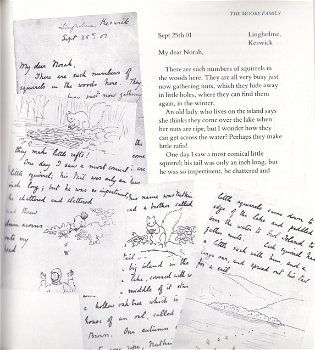 THE MOORE FAMILY
Lingholme, Keswick
Sept 25th 01.
My dear Norah,
There are such numbers of
squirrels in the woods here. They
are just now gathering
they make little rafts!
One day I saw a most comical
little squirrel; his tail was only an
inch long; but he was so impertinent,
he chattered and clattered
and threw
down acorns
onto my
head.
name was Nutkin
and a brother called
tail —
big island in the
lake, covered with
middle of it
a hollow oak tree which is
house of an owl, called
Brown. One autumn
little squirrels came down to
edge of the lake and paddled
over the water to Owl Island to
gather nuts. Each squirrel had
a little sack with him and a
large oar, and spread out his tail
for a sail.
Sept 25th 01
Lingholme,
Keswick.
My dear Norah,
There are such numbers of squirrels in
the woods here. They are all very busy just
now gathering nuts, which they hide away
in little holes, where they can find them
again, in the winter.
An old lady who lives on the island says
she thinks they come over the lake when
her nuts are ripe; but I wonder how they
can get across the water? Perhaps they make
little rafts!
One day I saw a most comical little
squirrel; his tail was only an inch long, but
he was so impertinent, he chattered and